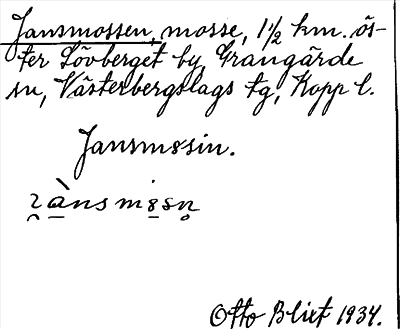 Jansmossen, mosse, 1½ km. ös-
ter Lövberget by, Grangärde
sn, Västerbergslags tg, Kopp. l.
Jansmosin.
Otto Blixt 1934.